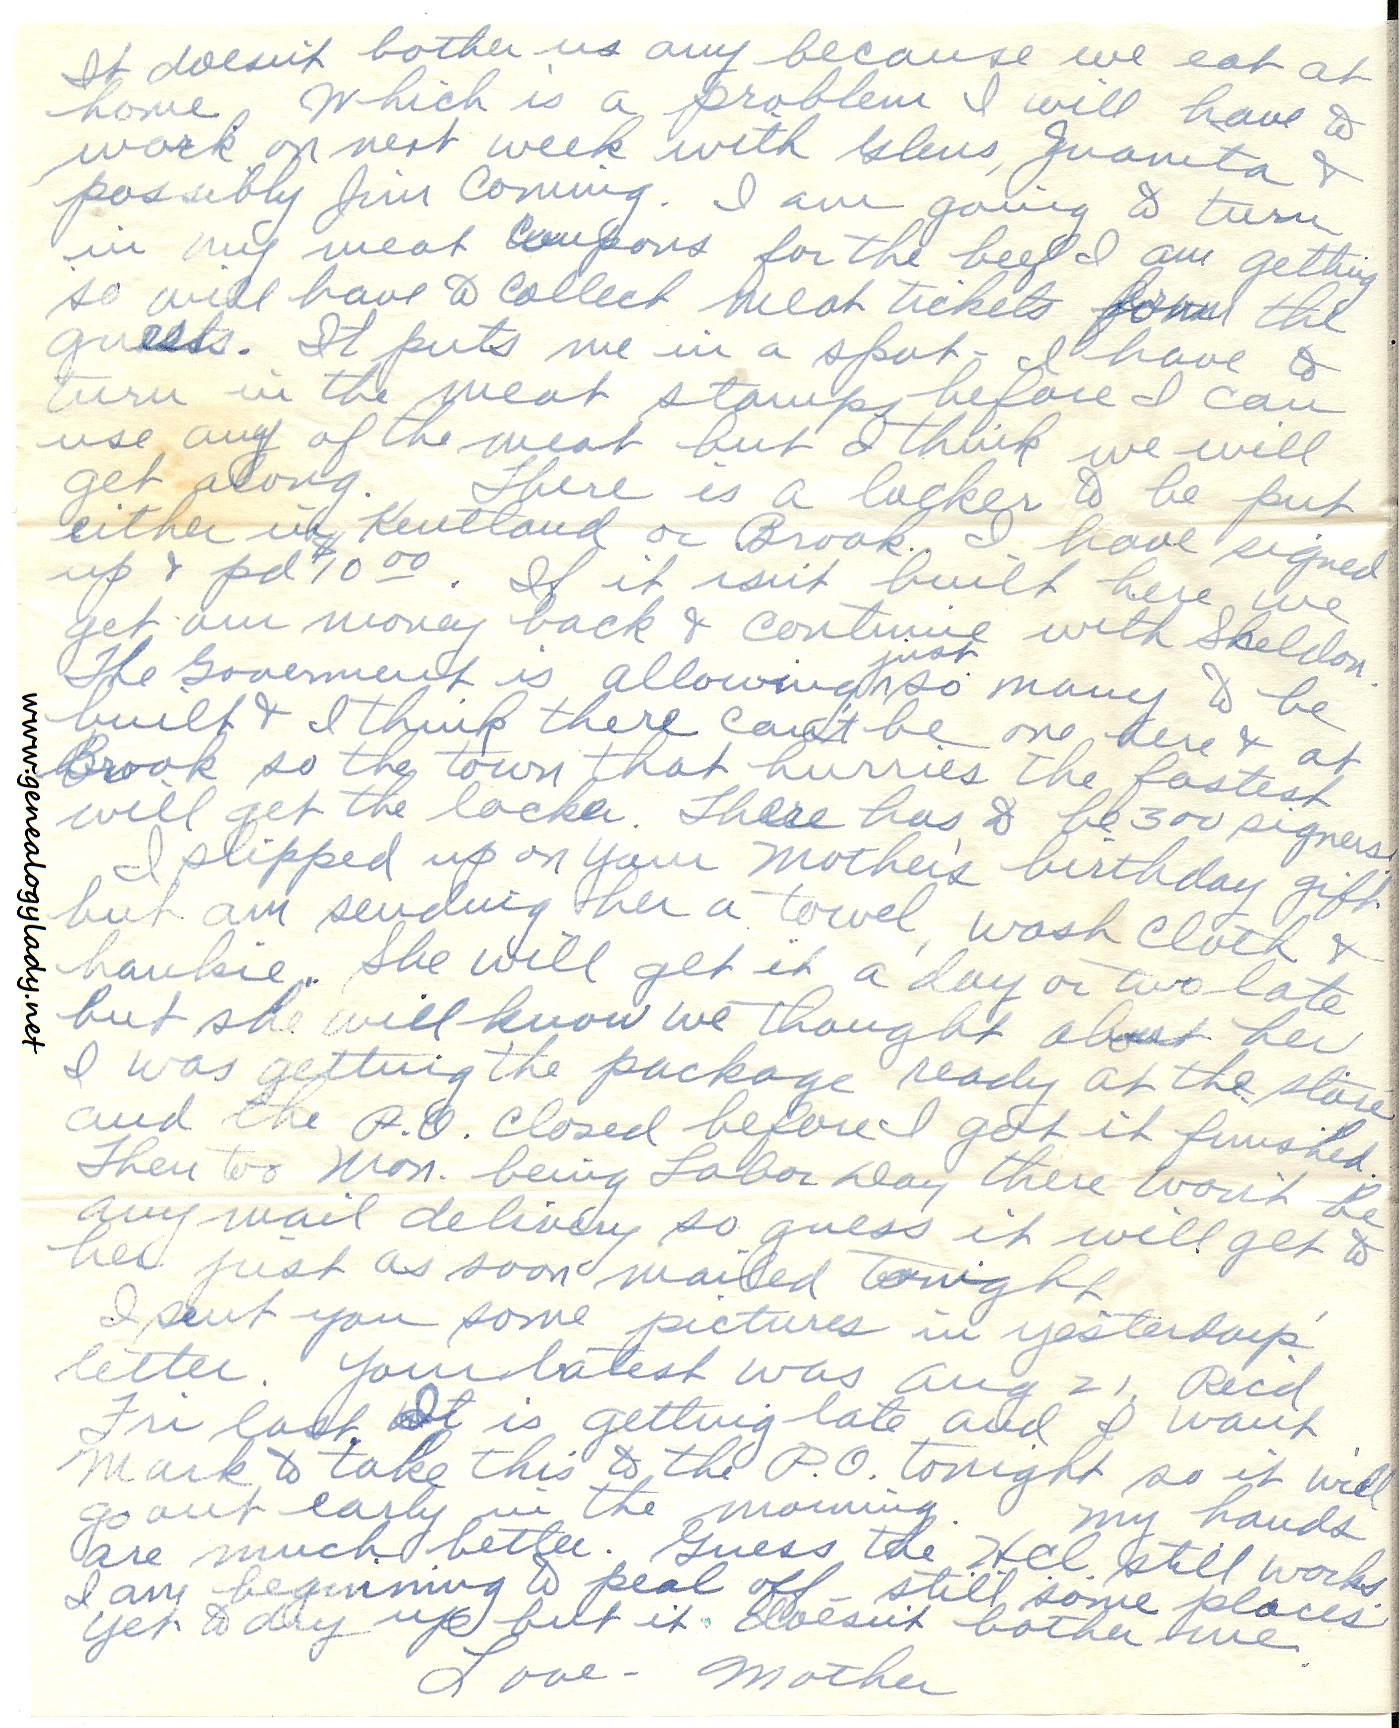 It doesn't bother us any because we eat at
home. Which is a problem I will have to
work on next week with Glens, Juanita &
possibly Jim Coming. I am going to turn
in my meat coupons for the beef I am getting
so will have to collect meat tickets from the
guests. It puts me in a spot - I have to
turn in the meat stamps before I can
use any of the meat but I think we will
get along. There is a locker to be put
either in Kentland or Brook. I have signed
up & pd $10 00. If it isn't built here we
get our money back & continue with Sheldon.
The Goverment is allowing just so many to be
built & I think there can't be one here & at
Brook so the town that hurries the fastest
will get the locker. There has to be 300 signers.
I slipped up on your Mother's birthday gift.
but am sending her a towel, wash cloth &
hankie. She will get it a day or two late
but she will know we thought about her
I was getting the package ready at the store
and the P.O. closed before I got it finished.
Then too Mon. being Labor Day there won't be
any mail delivery so guess it will get to
her just as soon mailed tonight.
I sent you some pictures in yesterday's
letter. Your latest was Aug 21, Rec'd
Fri last. It is getting late and I want
Mark to take this to the P.O. tonight so it will
go out early in the morning. My hands
are much better. Guess the HCl. still works
I am beginning to peal off. still some places
yet to dry up but it doesn't bother me.
Love - Mother
www.genealogylady.net